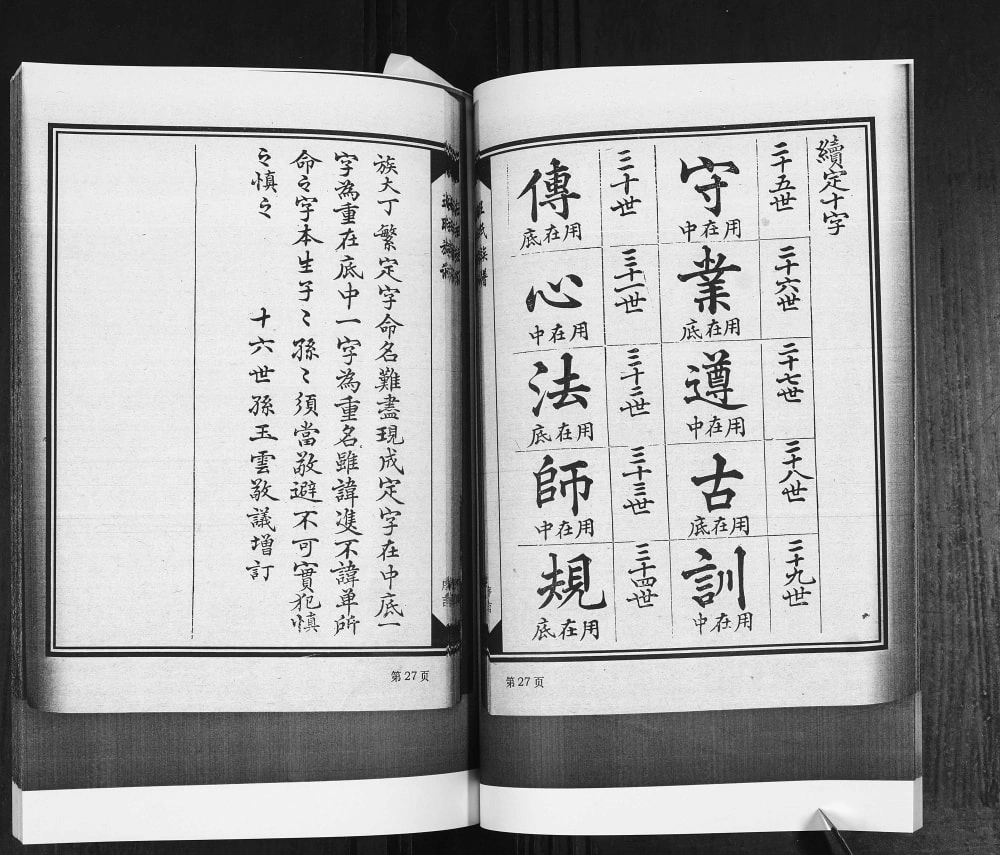 續定十字
二十五世
守
用在中
二十六世
業
用在底
二十七世
遵
用在中
二十八世
古
用在底
二十九世
訓
用在中
三十世
傳
用在底
三十一世
心
用在中
三十二世
法
用在底
三十三世
師
用在中
三十四世
規
用在底
氏族譜
第27页
族大丁繁定字命名難盡現成定字在中底一
字為重在底中一字為重名雖諱進不諱單所
命之字本生子〻孫〻須當敬避不可實犯慎
之慎之
十六世孫玉雲敬議增訂
第27页